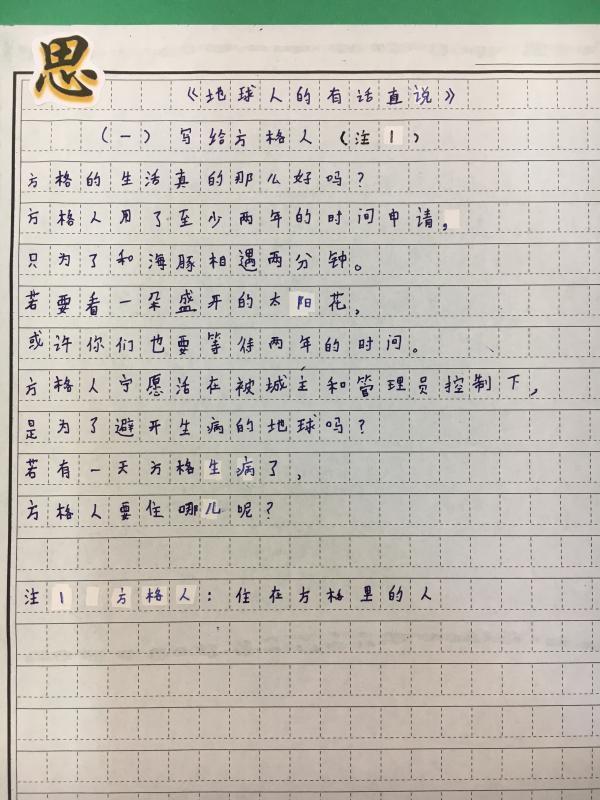 思
《地球人的有话直说》
（一）写给方格人（注1）
方格的生活真的那么好吗？
方格人用了至少两年的时间申请，
只为了和海豚相遇两分钟。
若要看一朵盛开的太阳花，
或许你们也要等待两年的时间。
方格人宁愿活在被城主和管理员控制下，
是为了避开生病的地球吗？
若有一天方格生病了，
方格人要住哪儿呢？
注1 方格人：住在方格里的人